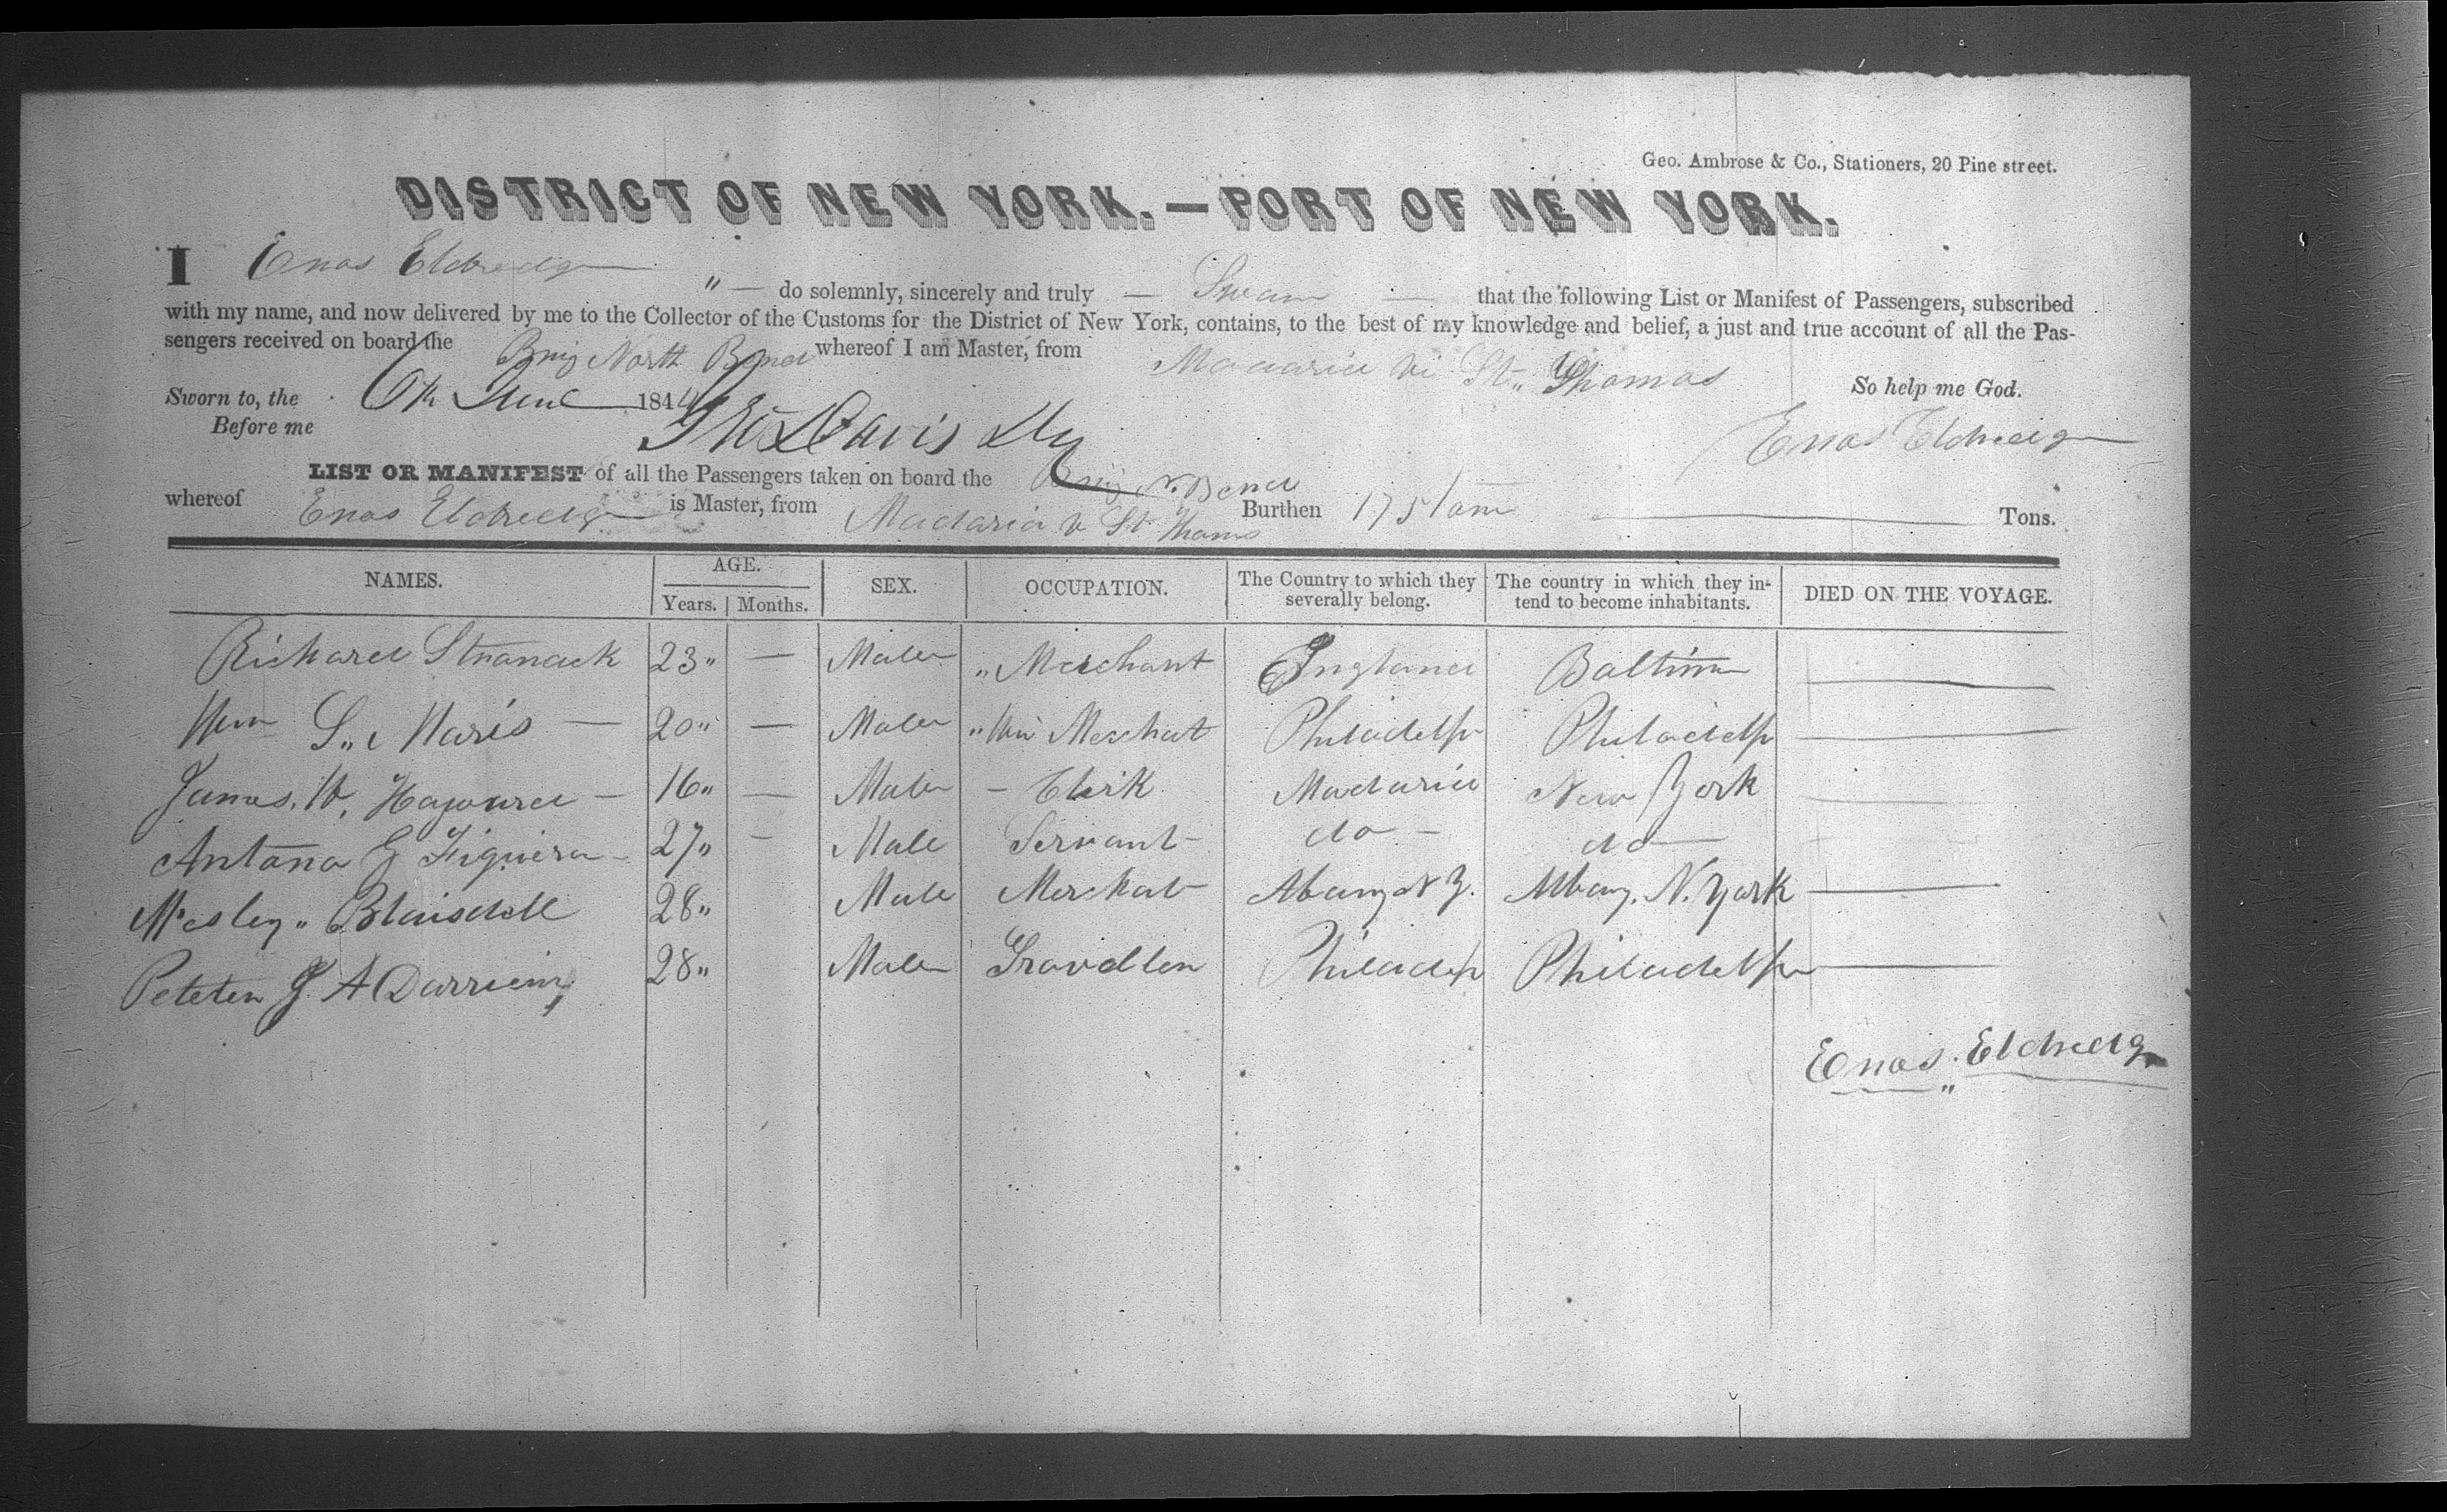 Geo. Ambrose & Co., Stationers, 20 Pine street.
DISTRICT OF NEW YORK.—PORT OF NEW YORK.
I Enos Eldredge " — do solemnly, sincerely and truly — Swear — that the following List or Manifest of Passengers, subscribed
with my name, and now delivered by me to the Collector of the Customs for the District of New York, contains, to the best of my knowledge and belief, a just and true account of all the Pas-
sengers received on board the Brig North Bend whereof I am Master, from St. Thomas So help me God.
Sworn to, the 6th June 1844
Before me Davis Enos Eldredge
LIST OR MANIFEST of all the Passengers taken on board the Brig N. Bend
whereof Enos Eldredge is Master, from St Thomas Burthen Tons.
NAMES. AGE. Years. Months. SEX. OCCUPATION. The Country to which they severally belong. The country in which they intend to become inhabitants. DIED ON THE VOYAGE.
Richard 23 " — Male " Merchant England Baltim
Wm S. 20 " — Male " Merchat Philadelp Philadelp
James. W. Hayward — 16 " — Male - Clerk New York
Antana G Figuiera - 27 " - Male Servant - do - do —
Wesley " Blaisdell 28 " Male Merchat Abany N Y. Albany. N. York
J. A 28 " Male Philadelp Philadelp
Enos. Eldredge